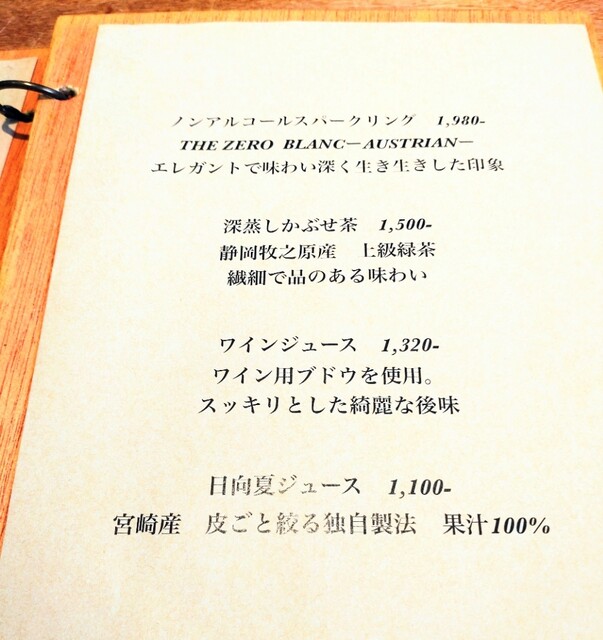 ノンアルコールスパークリング　1,980-
THE ZERO BLANC－AUSTRIAN－
エレガントで味わい深く生き生きした印象
深蒸しかぶせ茶　1,500-
静岡牧之原産　上級緑茶
繊細で品のある味わい
ワインジュース　1,320-
ワイン用ブドウを使用。
スッキリとした綺麗な後味
日向夏ジュース　1,100-
宮崎産　皮ごと絞る独自製法　果汁100%